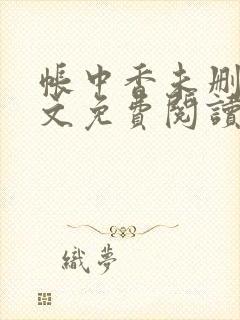 帳中香未刪
文免費閱讀
織夢